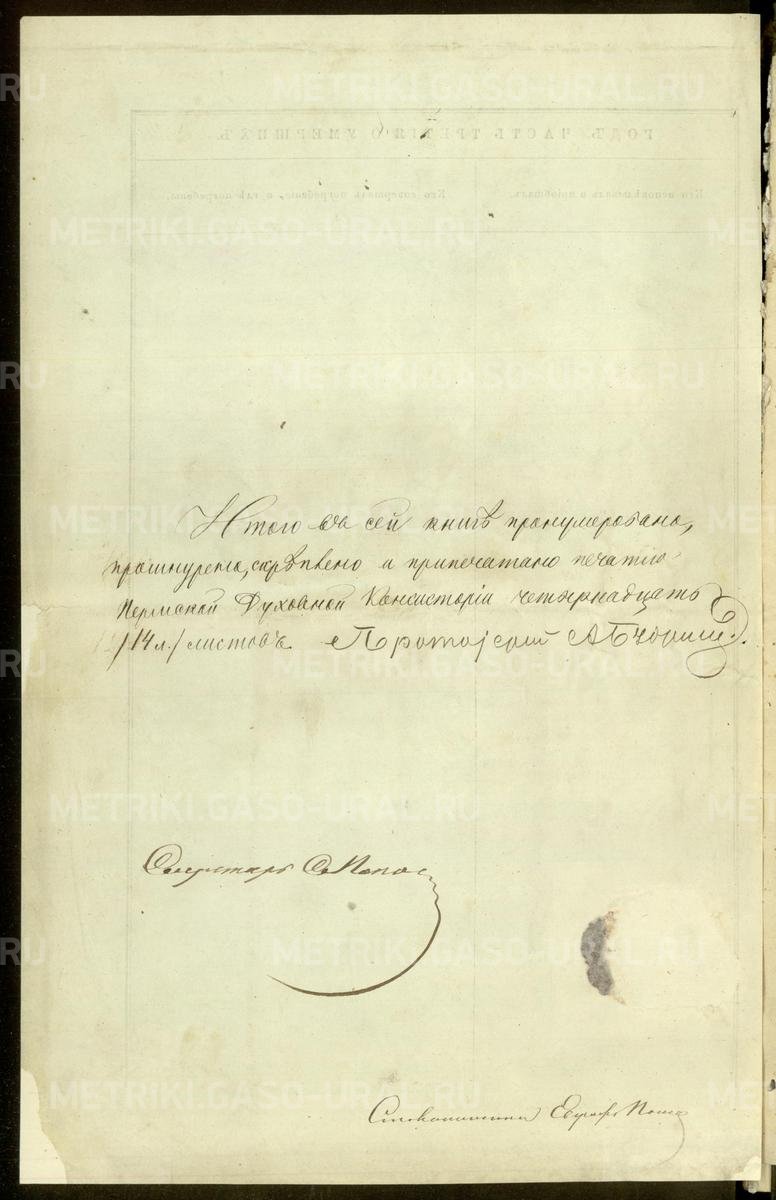 METRIKI.GASO-URAL.RU
ГОДЪ ЧАСТЬ ТРЕТІЯ О УМЕРШИХЪ.
Кто исповѣдывалъ и пріобщалъ.
Кто совершалъ погребеніе, и гдѣ погребены.
Итого въ сей книгѣ пронумеровано,
прошнурено, скрѣплено и припечатано печатію
Пермской Духовной Консисторіи четырнадцать
/14 л./ листовъ. Протоіерей А
Секретарь Попо
Столоначальникъ Евграфъ Попо